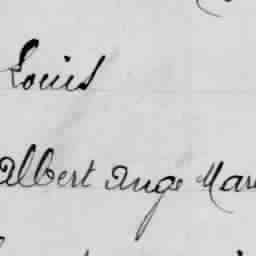 Louis
Albert Ange Mar